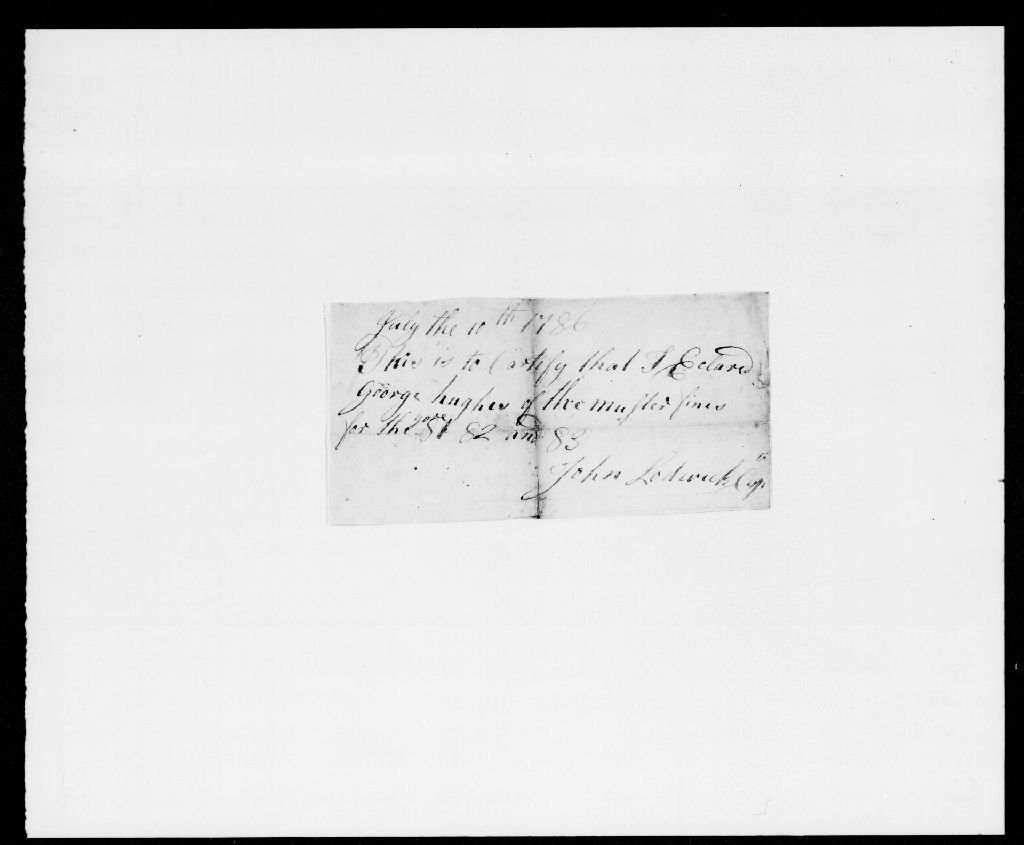 July the 10th 1786
This is to Cartify that I Eclared
George hughes of the muster fines
for the yore 81 82 and 83
John Lodwick Capn